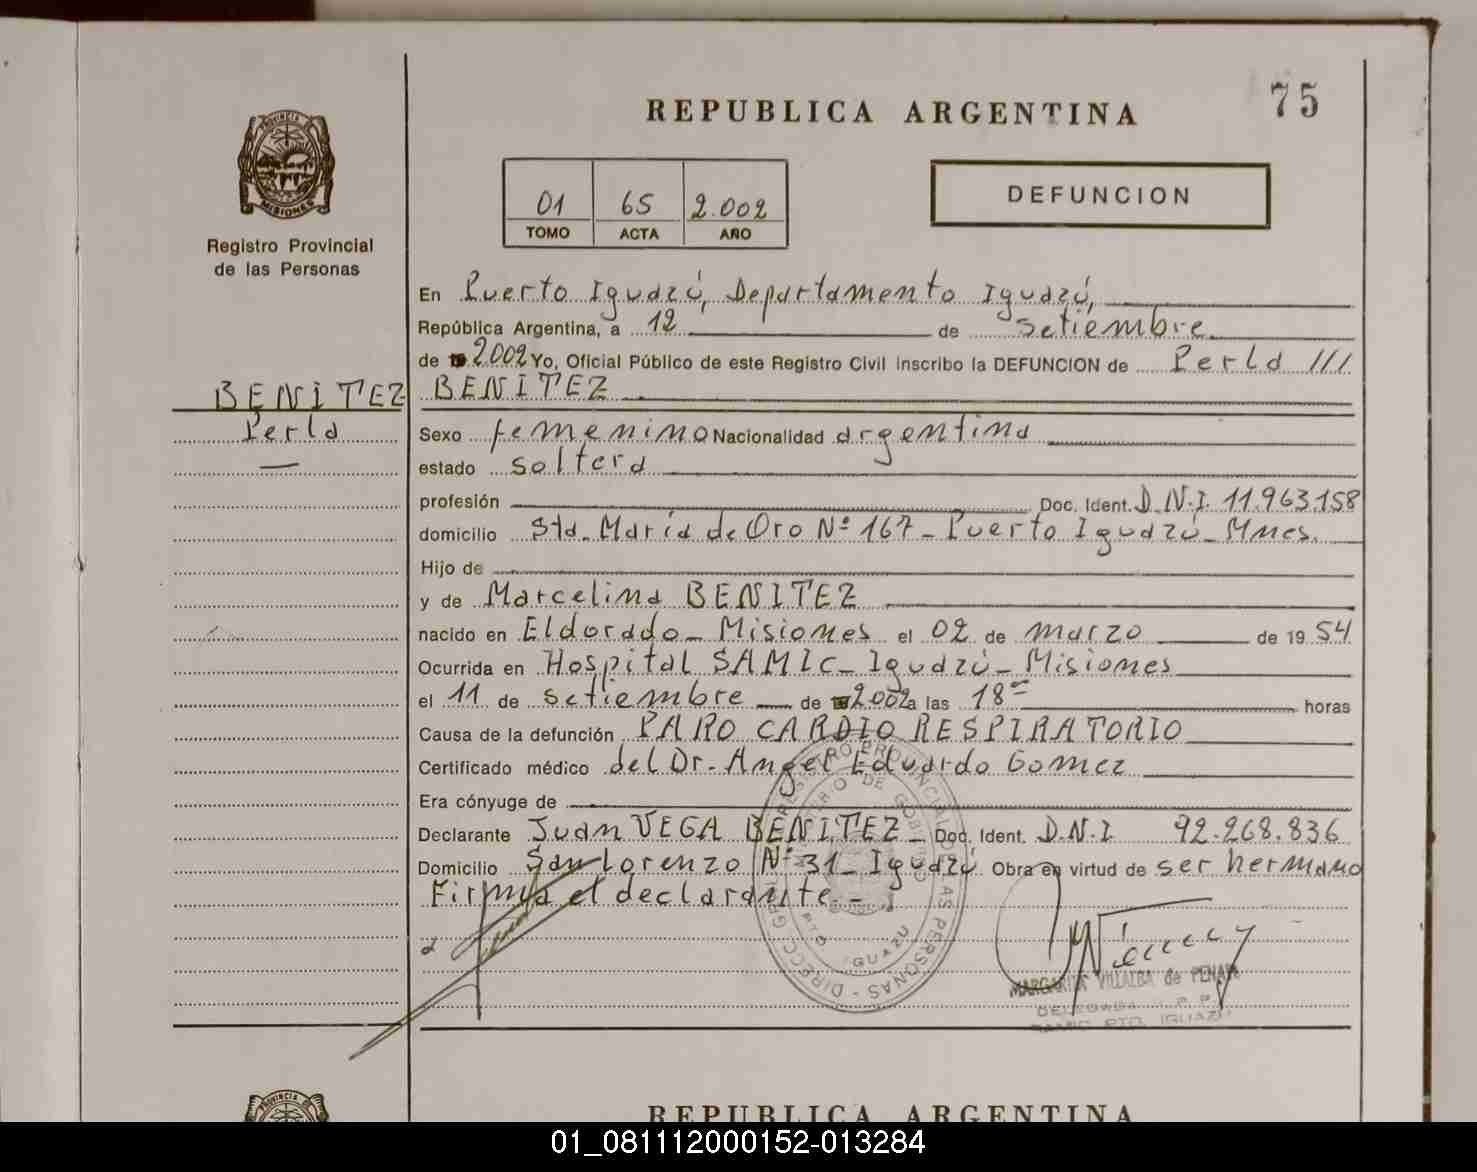 75
REPUBLICA ARGENTINA
PROVINCIA DE
MISIONES
Registro Provincial
de las Personas
01 65 2.002
TOMO ACTA AÑO
DEFUNCION
En Puerto Iguazú, Departamento Iguazú,
República Argentina, a 12 de setiembre
de 2002 Yo, Oficial Público de este Registro Civil inscribo la DEFUNCION de Perla ///
BENITEZ
BENITEZ
Perla
Sexo femenino Nacionalidad argentina
estado soltera
profesión Doc. Ident. D.N.I. 11.963.158
domicilio Sta. María de Oro Nº 167 - Puerto Iguazú - Mnes.
Hijo de
y de Marcelina BENITEZ
nacido en Eldorado - Misiones el 02 de marzo de 19 54
Ocurrida en Hospital SAMIC - Iguazú - Misiones
el 11 de setiembre de 2002 a las 18 horas
Causa de la defunción PARO CARDIO RESPIRATORIO
Certificado médico del Dr. Angel Eduardo Gomez
Era cónyuge de
Declarante Juan VEGA BENITEZ - Doc. Ident. D.N.I 92.268.836
Domicilio San Lorenzo Nº 31 - Iguazú Obra en virtud de ser hermano
Firma el declarante. -
REGISTRO PROVINCIAL DE LAS PERSONAS - DIRECC. GRAL.
MINISTERIO DE GOBIERNO
PTO. IGUAZU
MARGARITA VILLALBA de PENAY
DELEGADA R. P. P.
PTO. IGUAZU
PROVINCIA DE
REPUBLICA ARGENTINA
01_081112000152-013284